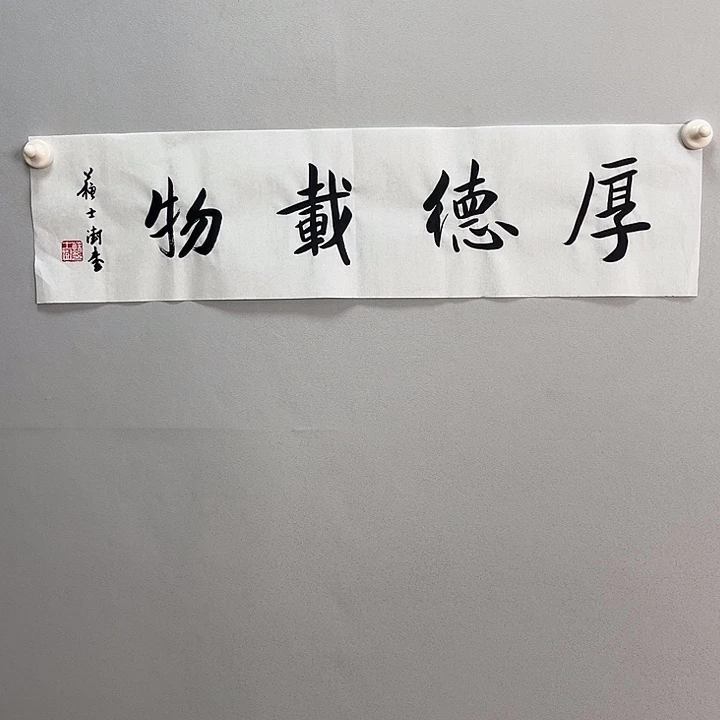 厚德載物
蘇士澍書